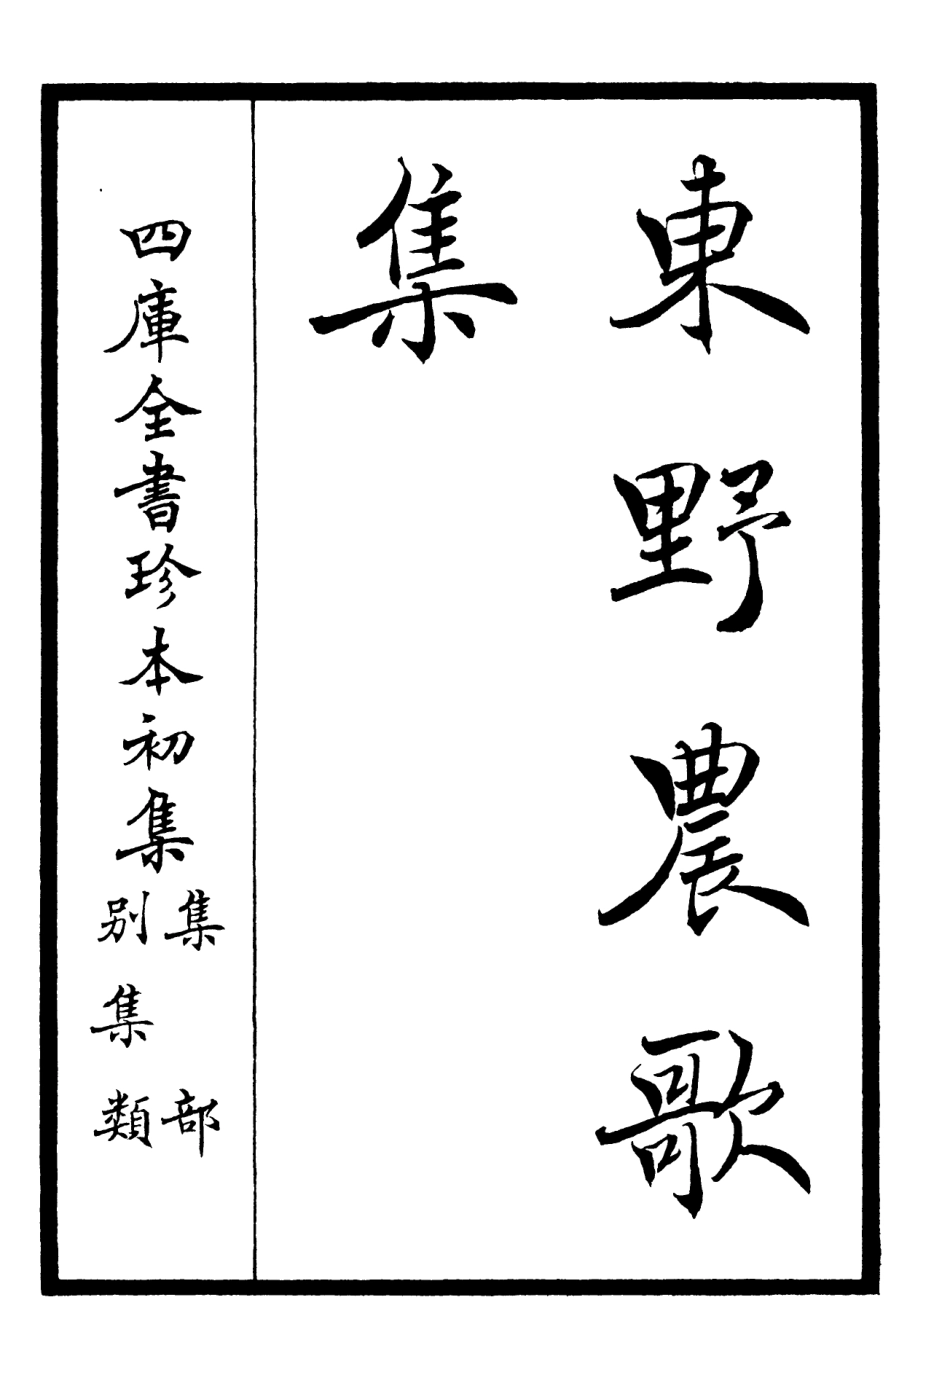 東野農歌
集
四庫全書珍本初集
集部
別集類